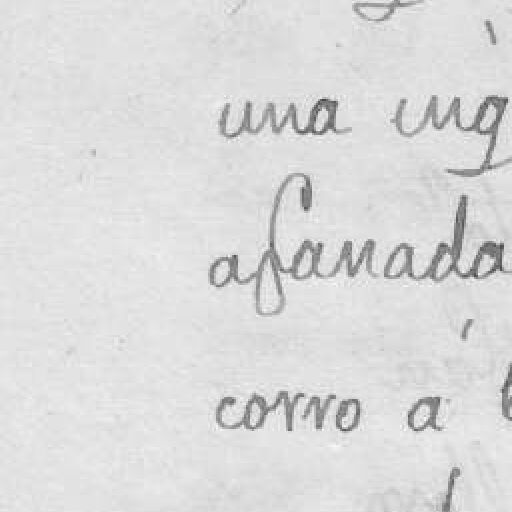 una ing
afanada
corro á